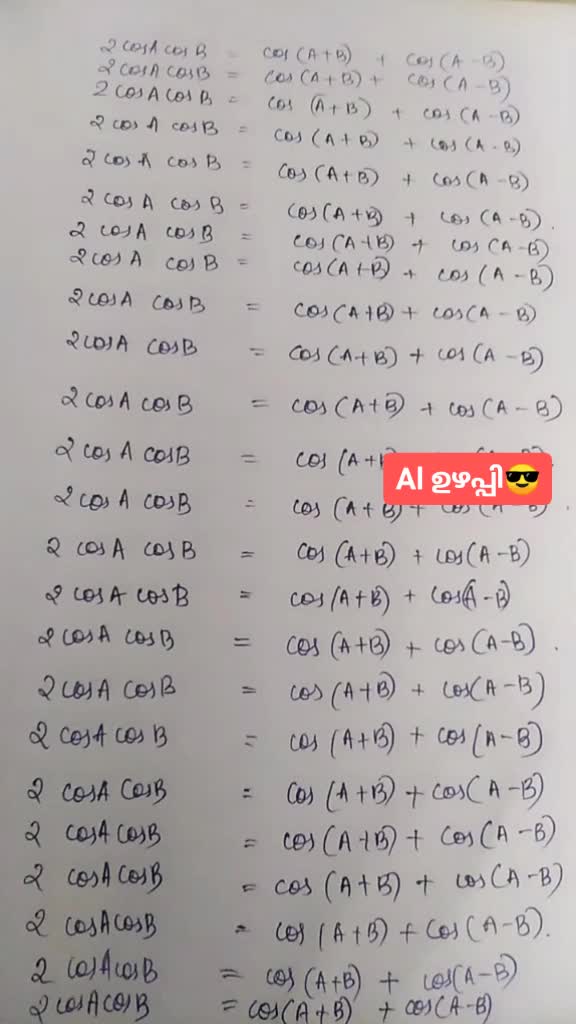 2 cosA cosB = cos (A+B) + cos (A-B)
2 cosA cosB = cos (A+B) + cos (A-B)
2 cosA cosB = cos (A+B) + cos (A-B)
2 cos A cosB = cos (A+B) + cos (A-B)
2 cos A cosB = cos (A+B) + cos (A-B)
2 cos A cosB = cos (A+B) + cos (A-B).
2 cosA cosB = cos (A+B) + cos (A-B)
2 cosA cosB = cos (A+B) + cos (A-B)
2 cosA cosB = cos (A+B) + cos (A-B)
2 cosA cosB = cos (A+B) + cos (A-B)
2 cosA cosB = cos (A+B) + cos (A-B)
2 cosA cosB = cos (A+
AI ഉഴപ്പി😎
2 cosA cosB = cos (A+B) + cos (A-B).
2 cosA cosB = cos (A+B) + cos (A-B)
2 cosA cosB = cos (A+B) + cos (A-B)
2 cosA cosB = cos (A+B) + cos (A-B).
2 cosA cosB = cos (A+B) + cos (A-B)
2 cosA cosB = cos (A+B) + cos (A-B)
2 cosA cosB = cos (A+B) + cos (A-B)
2 cosA cosB = cos (A+B) + cos (A-B)
2 cosAcosB = cos (A+B) + cos (A-B)
2 cosAcosB = cos (A+B) + cos (A-B).
2 cosAcosB = cos (A+B) + cos (A-B)
2 cosAcosB = cos (A+B) + cos (A-B)